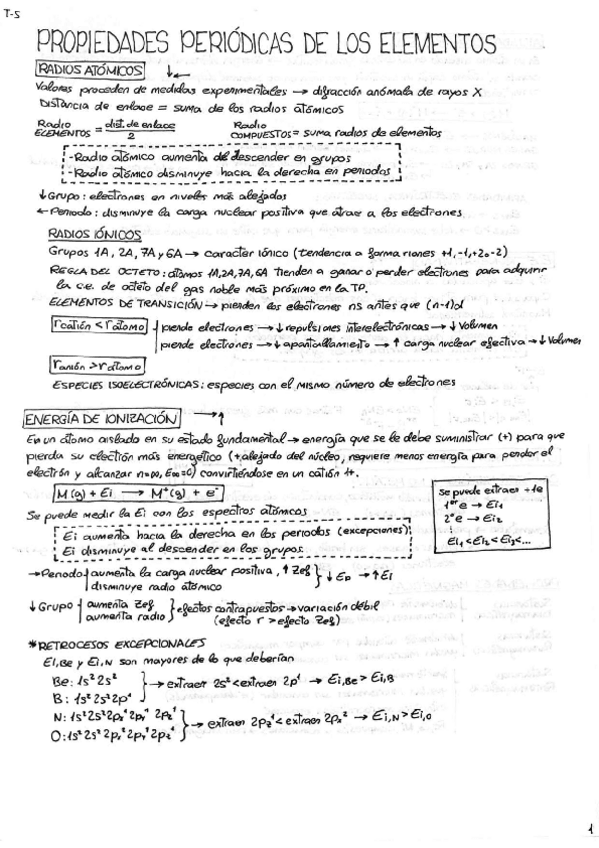 T-5
PROPIEDADES PERIÓDICAS DE LOS ELEMENTOS
RADIOS ATÓMICOS ↓←
Valores proceden de medidas experimentales → difracción anómala de rayos X
Distancia de enlace = suma de los radios atómicos
Radio ELEMENTOS = dist. de enlace / 2   Radio COMPUESTOS = suma radios de elementos
- Radio atómico aumenta al descender en grupos
- Radio atómico disminuye hacia la derecha en periodos
↓ Grupo: electrones en niveles más alejados
← Periodo: disminuye la carga nuclear positiva que atrae a los electrones
RADIOS IÓNICOS
Grupos 1A, 2A, 7A y 6A → carácter iónico (tendencia a formar iones +1, -1, +2 o -2)
REGLA DEL OCTETO: átomos 1A, 2A, 7A, 6A tienden a ganar o perder electrones para adquirir
la c.e. de octeto del gas noble más próximo en la TP.
ELEMENTOS DE TRANSICIÓN → pierden los electrones ns antes que (n-1)d
rcatión < rátomo { pierde electrones → ↓ repulsiones interelectrónicas → ↓ Volumen
pierde electrones → ↓ apantallamiento → ↑ carga nuclear efectiva → ↓ Volumen
ranión > rátomo
ESPECIES ISOELECTRÓNICAS: especies con el mismo número de electrones
ENERGÍA DE IONIZACIÓN → ↑
En un átomo aislado en su estado fundamental → energía que se le debe suministrar (+) para que
pierda su electrón más energético (+ alejado del núcleo, requiere menos energía para perder el
electrón y alcanzar n=∞, E∞=0) convirtiéndose en un catión 1+.
M(g) + Ei → M⁺(g) + e⁻
Se puede medir la Ei con los espectros atómicos
Ei aumenta hacia la derecha en los periodos (excepciones)
Ei disminuye al descender en los grupos
Se puede extraer +1e
1er e → Ei1
2º e → Ei2
Ei1 < Ei2 < Ei3 < ...
→ Periodo { aumenta la carga nuclear positiva, ↑ Zef
disminuye radio atómico } ↓ Ep → ↑ Ei
↓ Grupo { aumenta Zef
aumenta radio } efectos contrapuestos → variación débil
(efecto r > efecto Zef)
* RETROCESOS EXCEPCIONALES
Ei,Be y Ei,N son mayores de lo que deberían
Be: 1s² 2s²
B: 1s² 2s² 2p¹ } → extraer 2s² < extraer 2p¹ → Ei,Be > Ei,B
N: 1s² 2s² 2px¹ 2py¹ 2pz¹
O: 1s² 2s² 2px² 2py¹ 2pz¹ } → extraer 2pz¹ < extraer 2px² → Ei,N > Ei,O
1